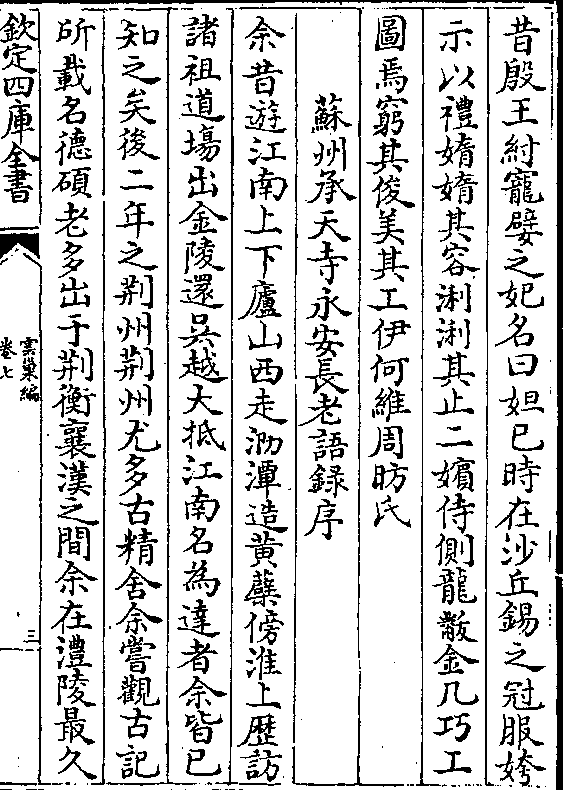 昔殷王紂寵嬖之妃名曰妲己時在沙丘錫之冠服姱
示以禮媠媠其容浰浰其止二嬪侍側龍黻金几巧工
圖焉窮其俊美其工伊何維周昉氏
蘇州承天寺永安長老語錄序
余昔遊江南上下廬山西走泐潭造黄蘗傍淮上歴訪
諸祖道塲出金陵還吳越大抵江南名為達者余皆已
知之矣後二年之荆州荆州尤多古精舍余嘗觀古記
所載名德碩老多出于荆衡襄漢之間余在澧陵最久
欽定四庫全書
雲巢編
卷七
三